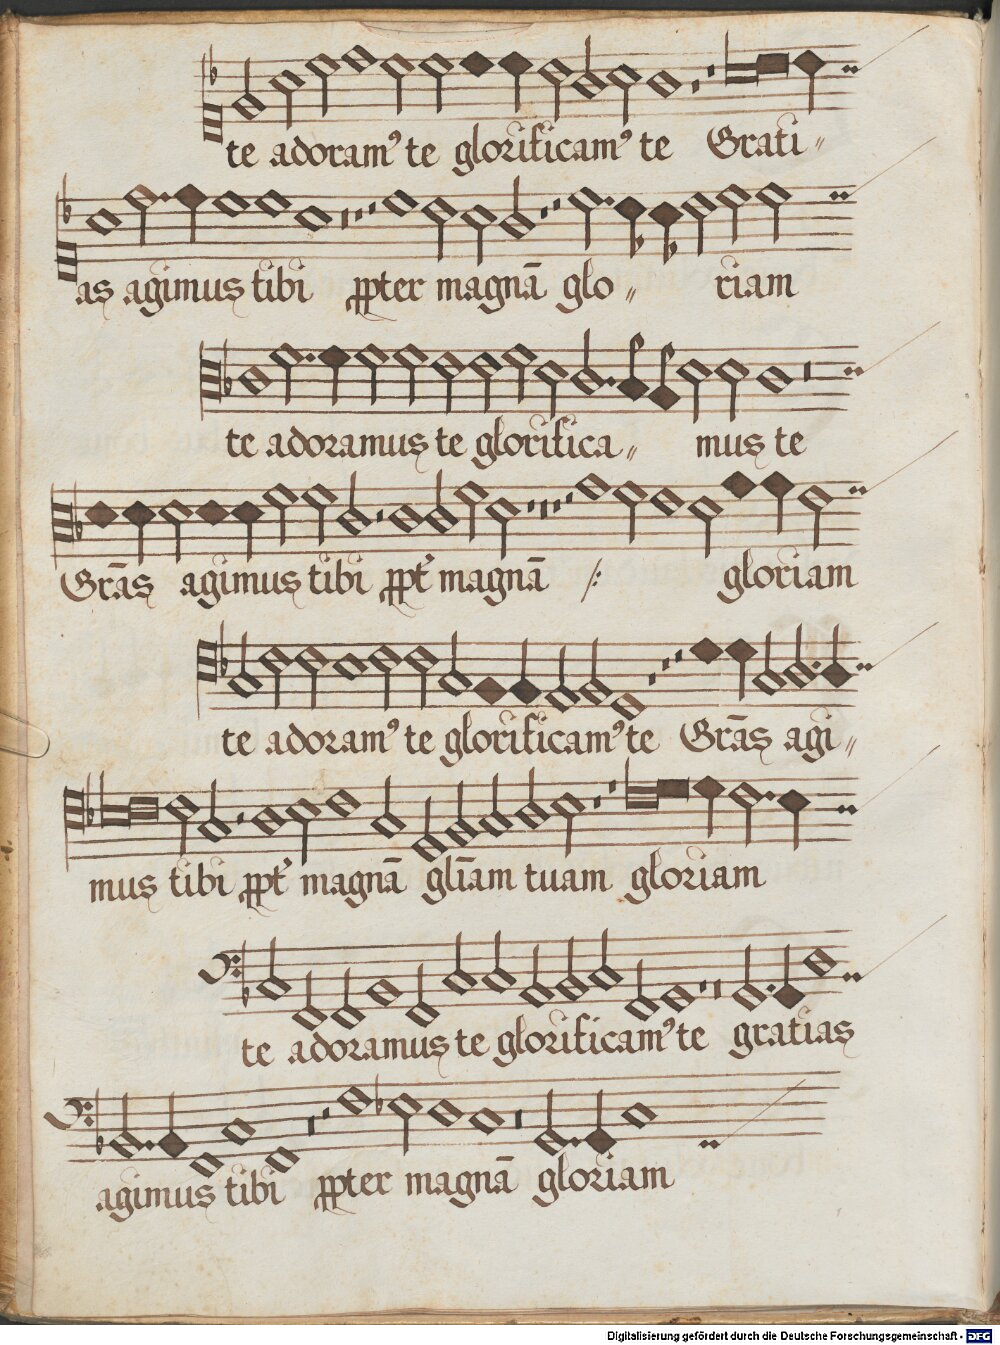 te adoram⁹ te glorificam⁹ te Grati〃
as agimus tibi ꝓpter magnā glo〃 riam
te adoramus te glorifica〃 mus te
Grãs agimus tibi ꝓpt̃ magnā ⁄: gloriam
te adoram⁹ te glorificam⁹ te Grãs agi〃
mus tibi ꝓpt̃ magnā gl̃iam tuam gloriam
te adoramus te glorificam⁹ te gratias
agimus tibi ꝓpter magnā gloriam
Digitalisierung gefördert durch die Deutsche Forschungsgemeinschaft - DFG